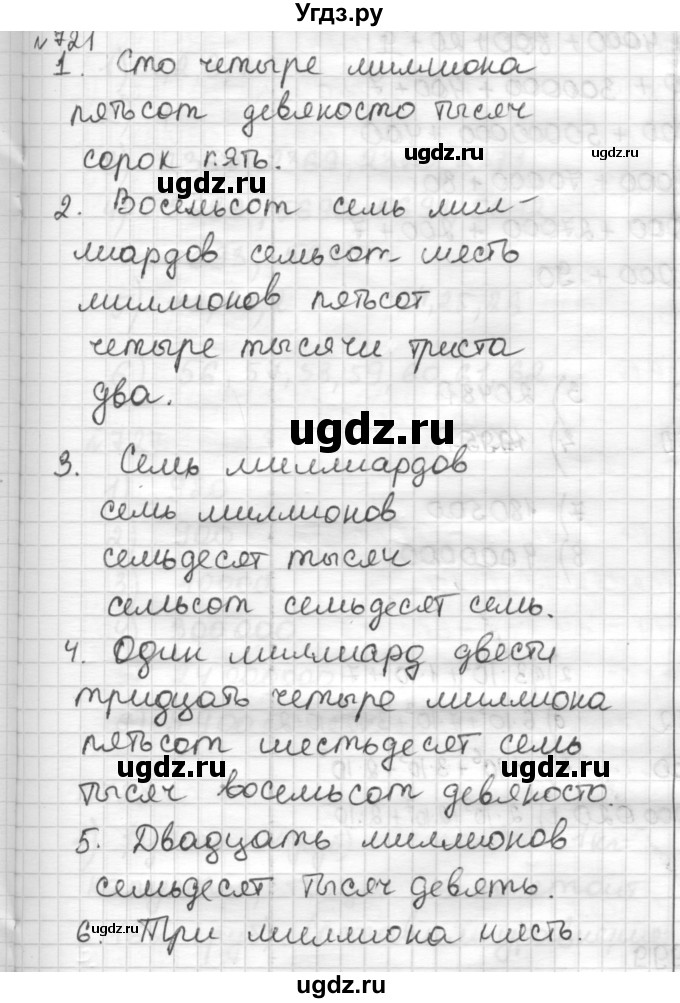 Угдз.ру
№721
1. Сто четыре миллиона
пятьсот девяносто тысяч
сорок пять.
ugdz.ru
ugdz.ru
ugdz.ru
2. Восемьсот семь мил-
лиардов семьсот шесть
миллионов пятьсот
четыре тысячи триста
два.
ugdz.ru
3. Семь миллиардов
семь миллионов
семьдесят тысяч
семьсот семьдесят семь.
4. Один миллиард двести
тридцать четыре миллиона
пятьсот шестьдесят семь
ugdz.ru
ugdz.ru
тысяч восемьсот девяносто.
5. Двадцать миллионов
семьдесят тысяч девять.
ugdz.ru
6. Три миллиона шесть.
ugdz.ru
ugdz.ru